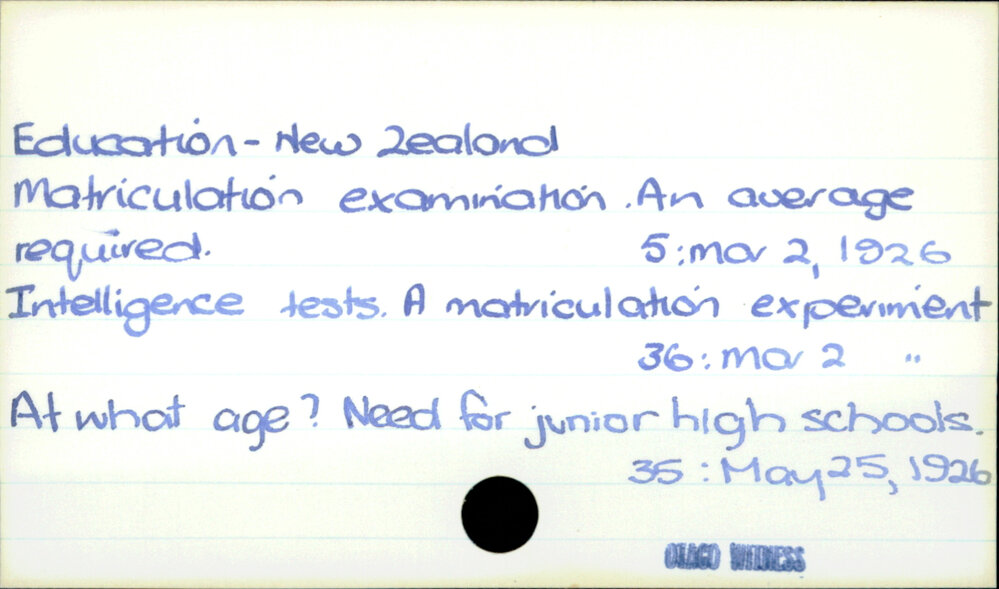 Education - New Zealand
Matriculation examination. An average
required. 5: Mar 2, 1926
Intelligence tests. A matriculation experiment
36: Mar 2 "
At what age? Need for junior high schools.
35: May 25, 1926
OTAGO WITNESS